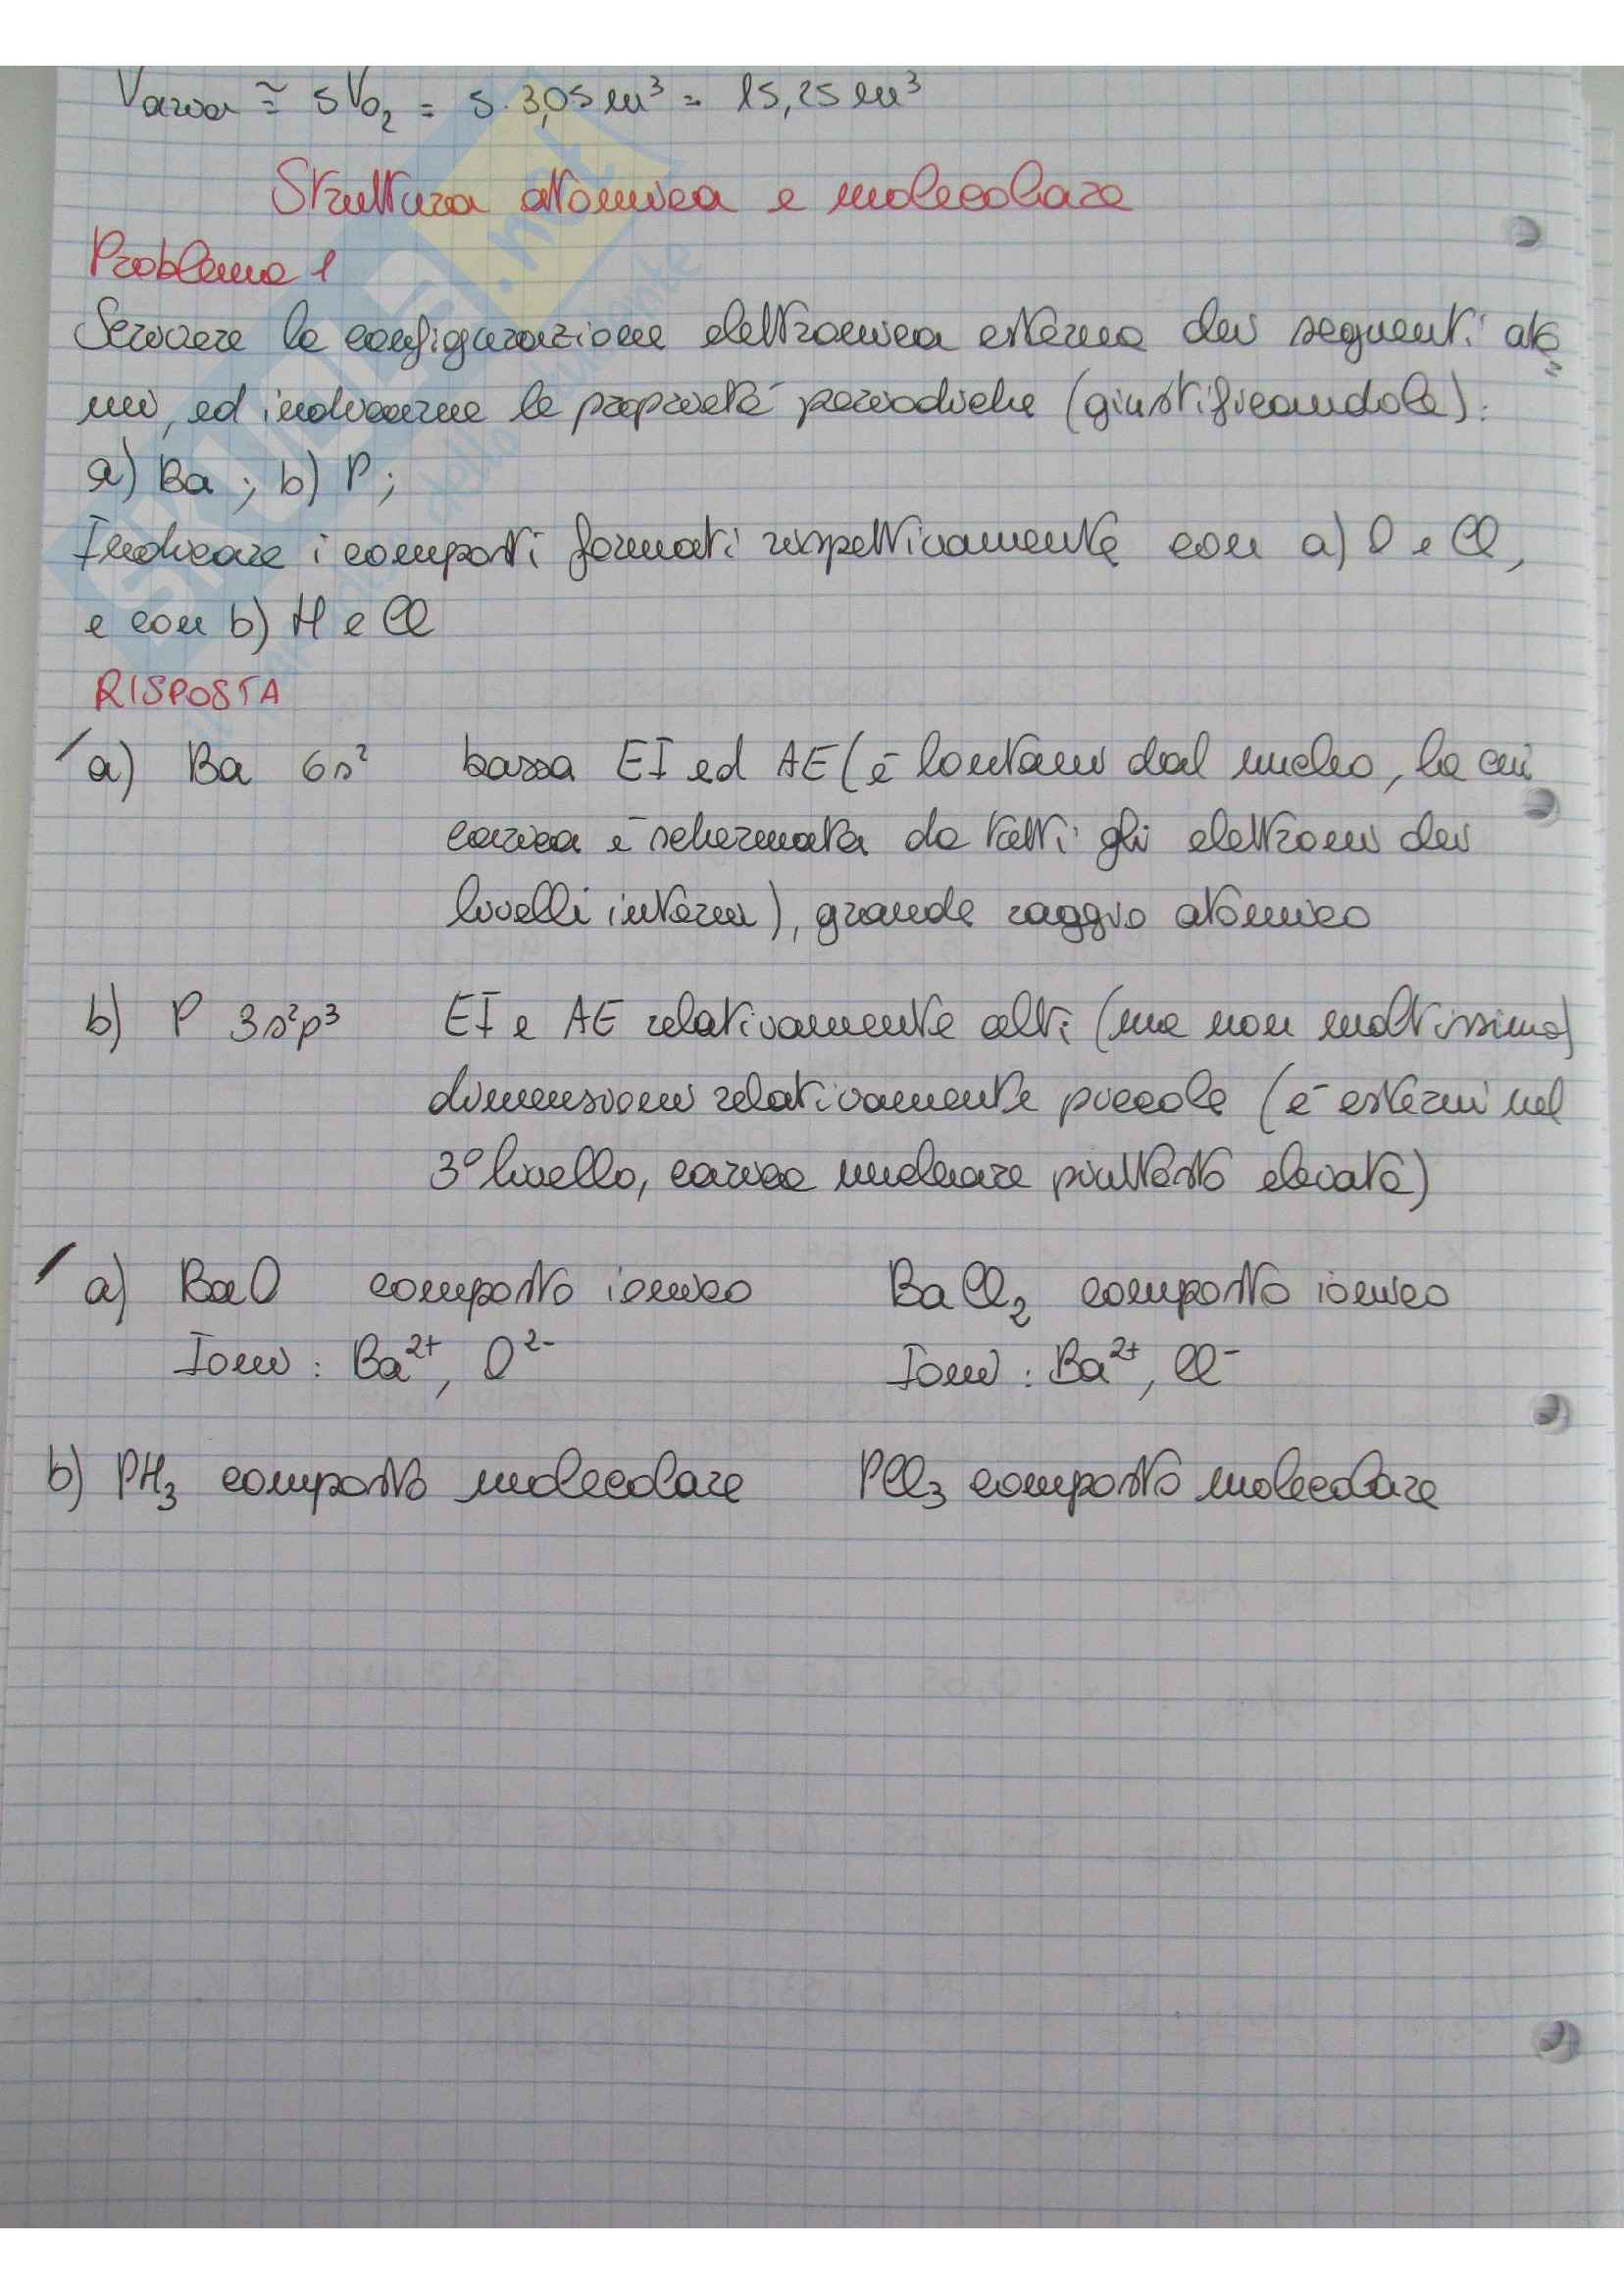 Varia ≅ 5VO₂ = 5·3,05 m³ = 15,25 m³
Struttura atomica e molecolare
Problema 1
Scrivere la configurazione elettronica esterna dei seguenti ato
mi, ed indicarne le proprietà periodiche (giustificandole):
a) Ba ; b) P ;
Indicare i composti formati rispettivamente con a) O e Cl,
e con b) H e Cl
RISPOSTA
a) Ba 6s² bassa EI ed AE (e⁻ lontani dal nucleo, la cui
carica è schermata da tutti gli elettroni dei
livelli interni), grande raggio atomico
b) P 3s²p³ EI e AE relativamente alti (ma non moltissimo)
dimensioni relativamente piccole (e⁻ esterni nel
3° livello, carica nucleare piuttosto elevata)
a) BaO composto ionico BaCl₂ composto ionico
Ioni : Ba²⁺, O²⁻ Ioni : Ba²⁺, Cl⁻
b) PH₃ composto molecolare PCl₃ composto molecolare
SKUOLA.net